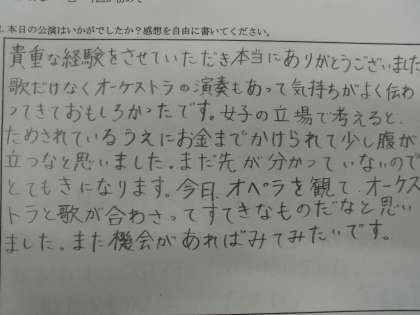 .本日の公演はいかがでしたか？感想を自由に書いてください。
貴重な経験をさせていただき本当にありがとうございました
歌だけなくオーケストラの演奏もあって気持ちがよく伝わ
ってきておもしろかったです。女子の立場で考えると、
ためされているうえにお金までかけられて少し腹が
立つなと思いました。まだ先が分かっていないので
とてもきになります。今日、オペラを観て、オーケス
トラと歌が合わさってすてきなものだなと思い
ました。また機会があればみてみたいです。